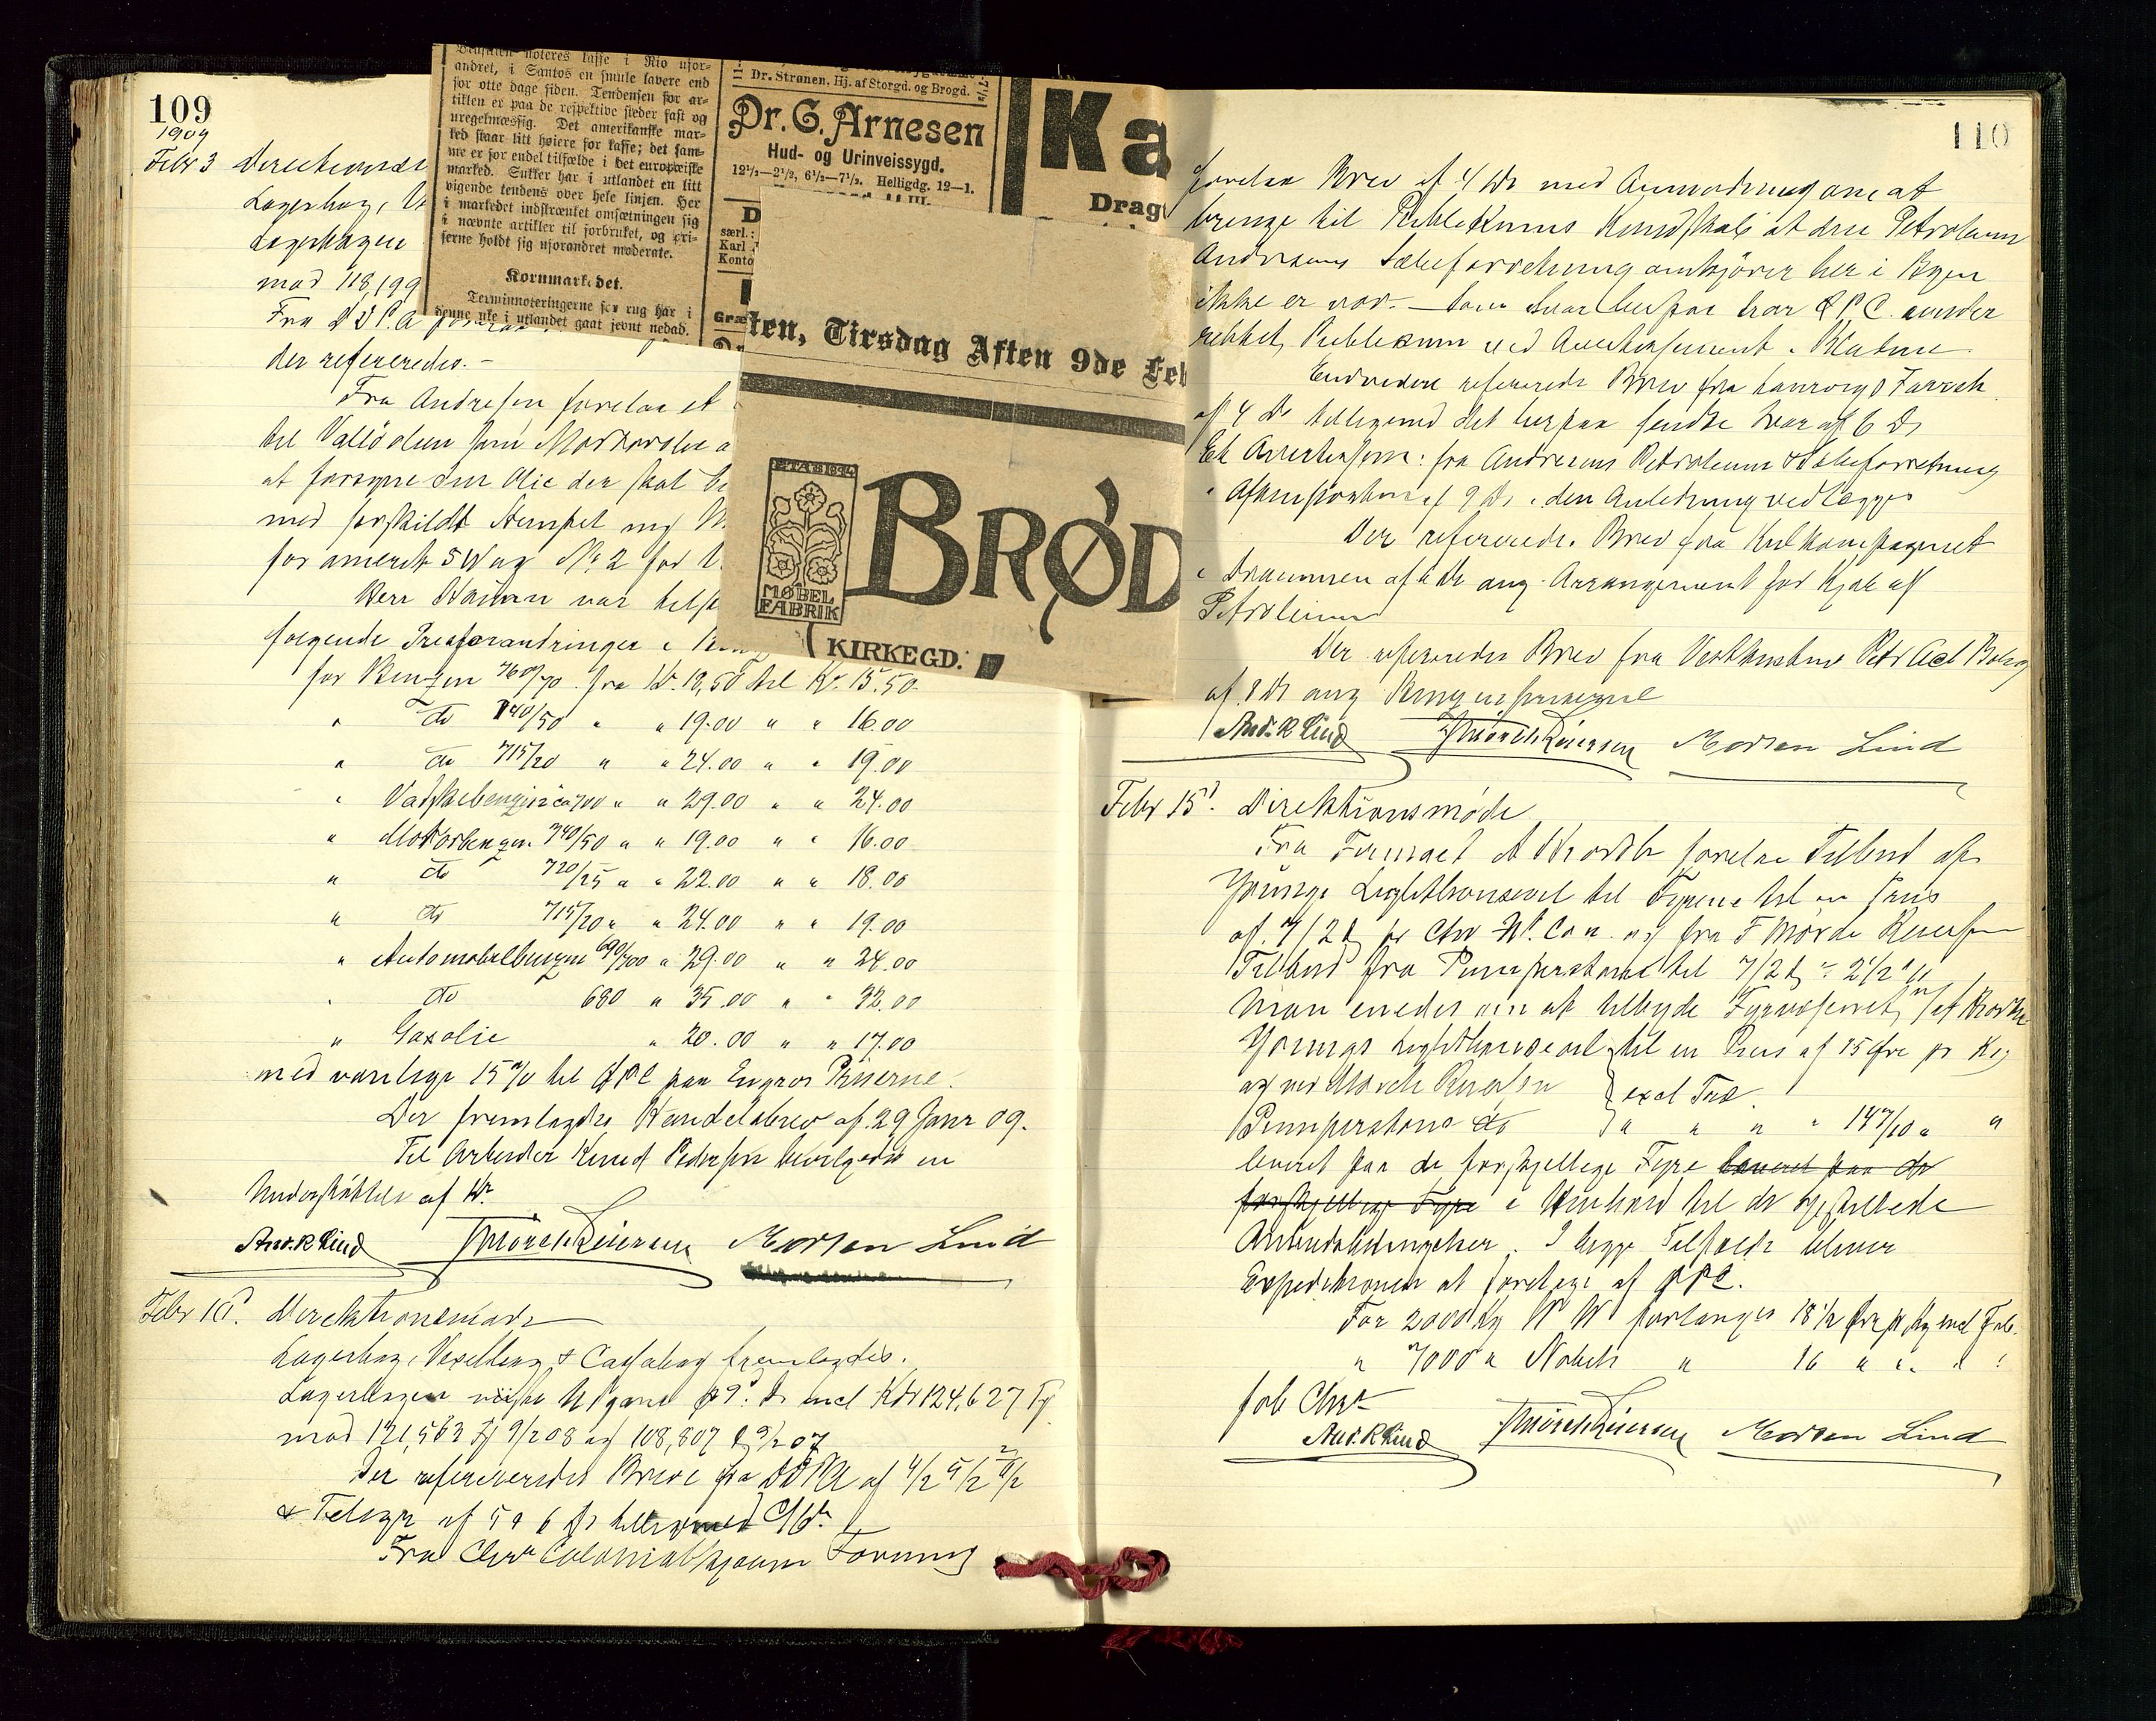 109
1909
Febr 3 Directionsmø
Lagerbog, V
Lagerbogen
mod 118,199
Fra D D P. A forelaa
der refereredes.-
Fra Andresen forelaa et
til Vallöolien som Motorolie
at forsyne sin Olie der skal
med sæskildt Stempel
for amerik S W og No 2 for
Herr var
følgende Prisforandringer i
for Benzin 760/70 fra Kr. 18,50 til Kr. 15.50
" do 740/50 " " 19.00 " " 16.00
" do 715/20 " " 24.00 " " 19.00
" Vadskebenzin ca 700 " " 29.00 " " 24.00
" Motorbenzin 740/50 " " 19.00 " " 16.00
" do 720/25 " " 22.00 " " 18.00
" do 715/20 " " 24.00 " " 19.00
" Automobilbenzin 690/700 " 29.00 " " 24.00
" do 680 " 35.00 " " 32.00
" Gasolie " 20.00 " " 17.00
med vanlige 15 % til ØPC paa Engros Priserne.
Der fremlagdes Handelsbrev af 29 Janr 09.
Til Arbeider Knud Pedersen bevilgedes en
Understøttelse af Kr.
And. R Lind TMörch Reiersen Morten Lind
Febr 10. Direktionsmøde
Lagerbog, Vexelbog & Cassabog fremlagdes.
Lagerbogen viiste Udgand 9. ds incl 124,627 Fg
mod 121,563 Fg 9/2 08 og 108,807 9/2 07
Der refereredes Breve fra DDPA af 4/2 5/2
& Telegr af 5 & 6 ds tilligemed
Fra Chra Colonial Forening
Beholdn noteres kaffe i Rio ufor-
andret, i Santos en smule lavere end
for otte dage siden. Tendensen for ar-
tiklen er paa de respektive steder fast og
uregelmæssig. Det amerikanske mar-
ked staar litt høiere for kaffe; det sam-
me er for endel tilfælde i det europæiske
marked. Sukker har i utlandet en litt
vigende tendens over hele linjen. Her
i markedet indskrænket omsætningen sig
i nævnte artikler til forbruket, og pri-
serne holdt sig uforandret moderate.
Kornmarkedet.
Terminnoteringerne for rug har i
denne uke i utlandet gaat jevnt nedad.
Dr. Strønen, Hj. af Storgd. og Brogd.
Dr. G. Arnesen
Hud- og Urinveissygd.
12½–2½, 6½–7½. Helligdg. 12–1.
D
særl.:
Karl
Konto
Græ
Ka
Drag
ten, Tirsdag Aften 9de Feb
ETAB 1894
MØBEL
FABRIK
BRØD
KIRKEGD.
110
forelaa Brev af 4 ds med Anmodning om at
bringe til Publikums Kundskab at den Petroleum
Andresens Sæbeforretning omkjører her i Byen
ikke er vor. – Som Svar herpaa har Ø P C. under
rettet Publikum ved Avertissement i Bladene
Endvidere refereredes Brev fra Farveh.
af 4 ds tilligemed det herpaa sendte Svar af 6 ds
Et Avertissem: fra Andresens Petroleum & Sæbeforretning
i Aftenposten af 9 ds. i den Anledning vedlægges
Der refereredes Brev fra Kulkompagniet
i Drammen af ds ang. Arrangement for Kjøb af
Petroleum
Der refereredes Brev fra Vestlandske Petr Act Bolag
af 8 ds ang Benzinpriserne
And. R Lind TMörch Reiersen Morten Lind
Febr 15. Direktionsmøde
Fra Firmaet forelaa Tilbud af
Youngs Lighthouseoil til Fyrene til en Pris
af 7/2 d pr og fra F Mörch Reiersen
Tilbud fra Pumpherston til 7/2 d 2 1/2 %
Man enedes om at tilbyde Fyrvæsenet
Youngs Lighthouseoil til en Pris af 15 Øre pr Kg
og ved Mörch Reiersen } excl Fad
Pumpherstons do } " " " " 14 7/10 " "
leveret paa de forskjellige Fyre leveret paa de
forskjellige Fyre i Henhold til de opstillede
Anbudsbetingelser. I begge Tilfælde bliver
Expeditionen at foretage af ØPC.
For 2000 Kg W W forlanges 18 1/2 Øre pr Kg incl Fad.
" 7000 " Nobels " 16 " " "
fob Chra
And. R Lind TMörch Reiersen Morten Lind